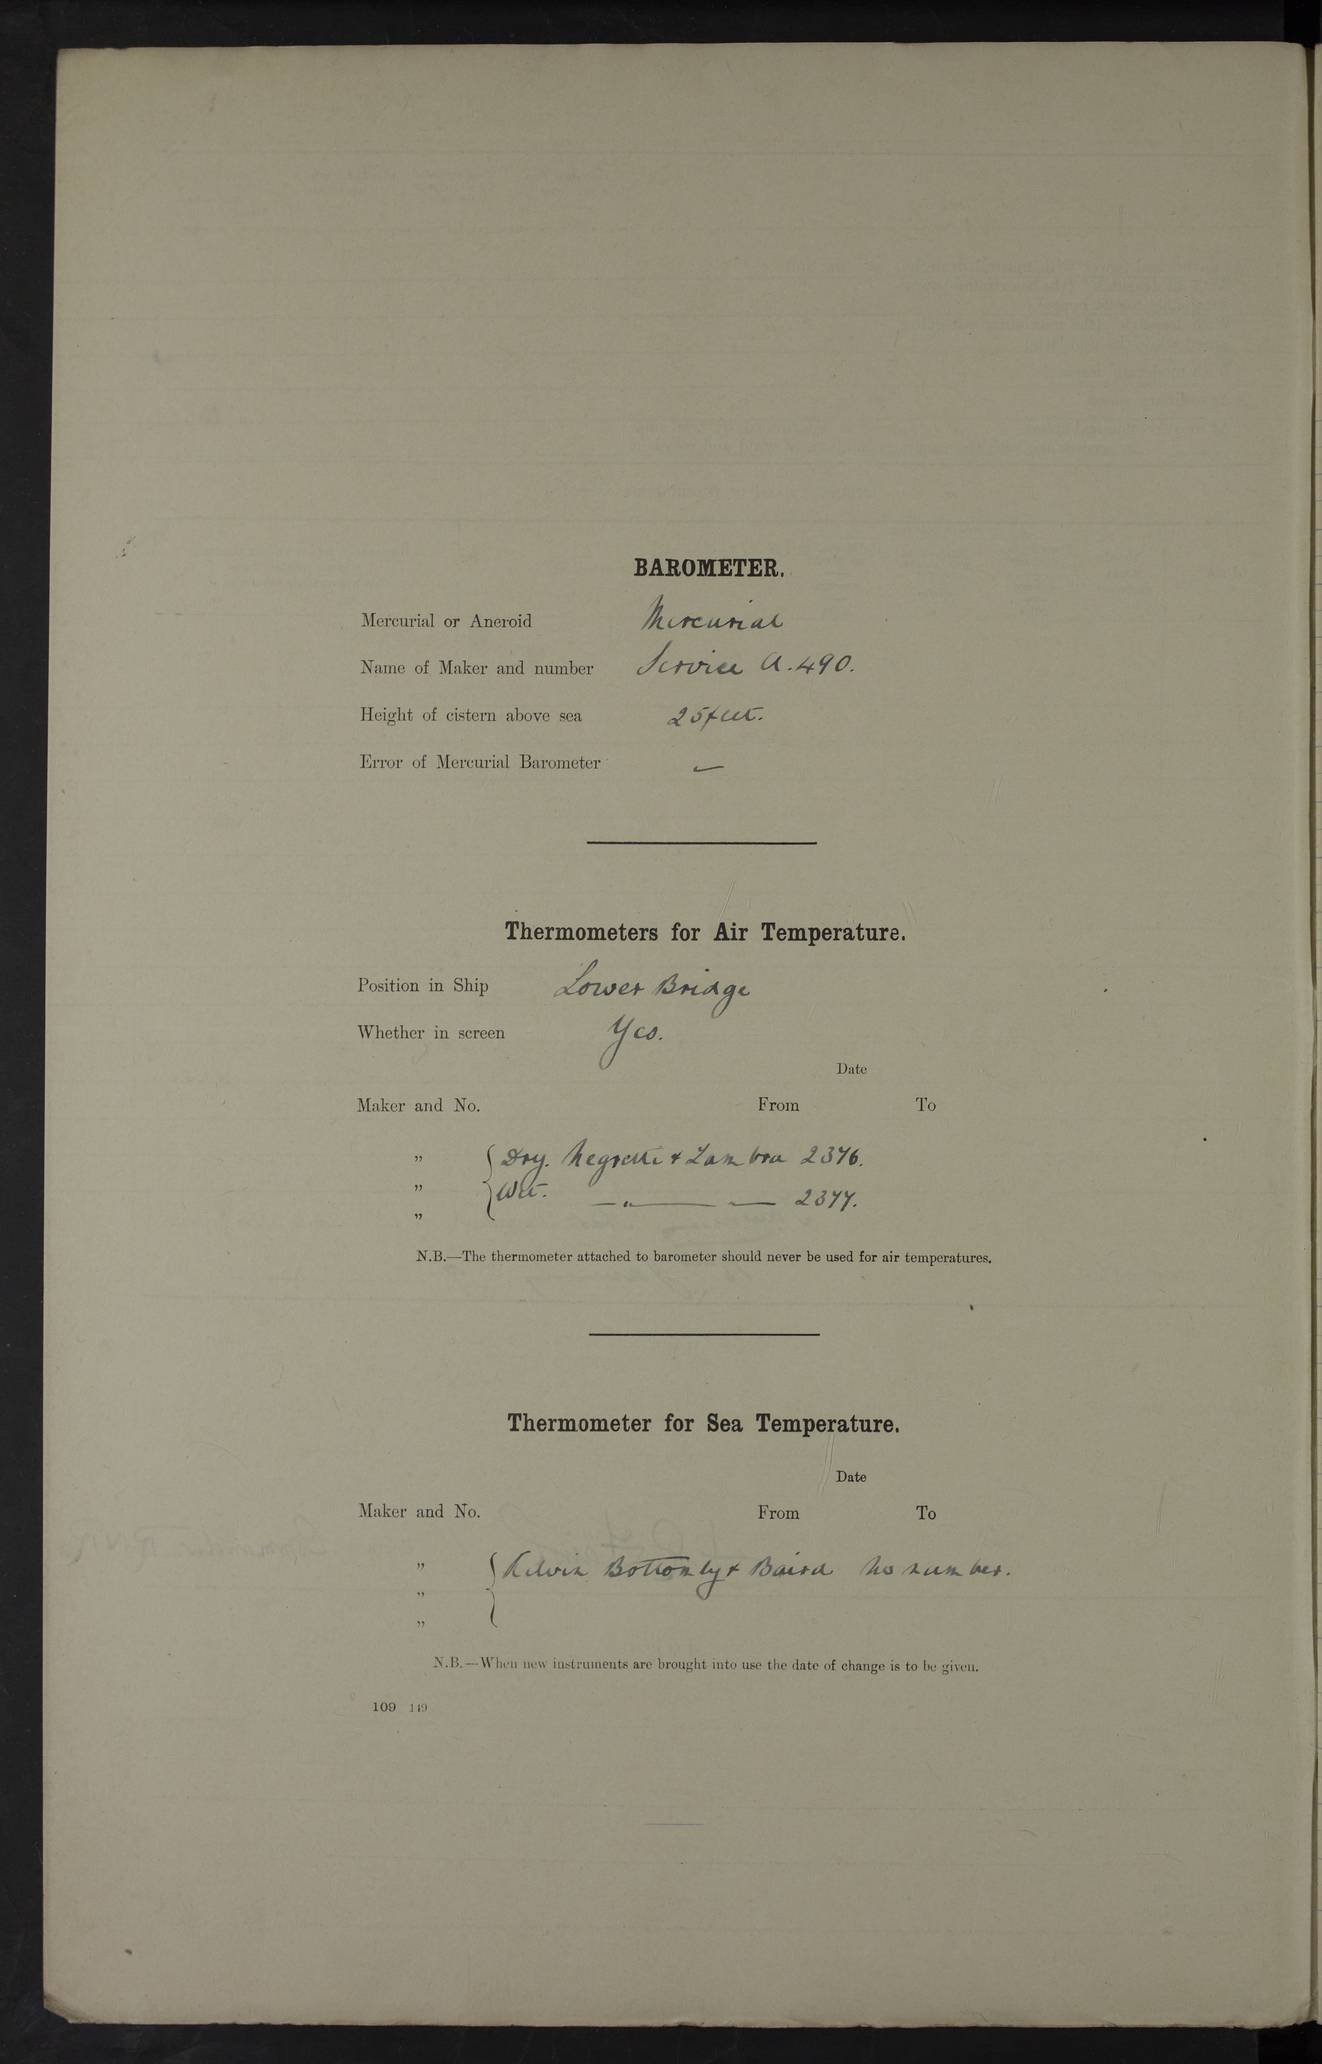 BAROMETER.
Mercurial or Aneroid Mercurial
Name of Maker and number Service A.490.
Height of cistern above sea 25 feet.
Error of Mercurial Barometer —
Thermometers for Air Temperature.
Position in Ship Lower Bridge
Whether in screen Yes.
Date
Maker and No. From To
" { Dry. Negretti & Zambra 2376.
" { Wet. — " — — 2377.
"
N.B.—The thermometer attached to barometer should never be used for air temperatures.
Thermometer for Sea Temperature.
Date
Maker and No. From To
" { Kelvin Bottomley & Baird no number.
"
"
N.B.—When new instruments are brought into use the date of change is to be given.
109 149